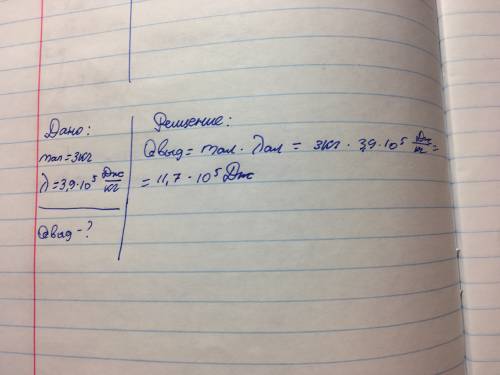 Дано:
mал = 3кг
λ = 3,9 · 10⁵ Дж/кг
Qвыд - ?
Решение:
Qвыд = mал · λал = 3кг · 3,9 · 10⁵ Дж/кг =
= 11,7 · 10⁵ Дж